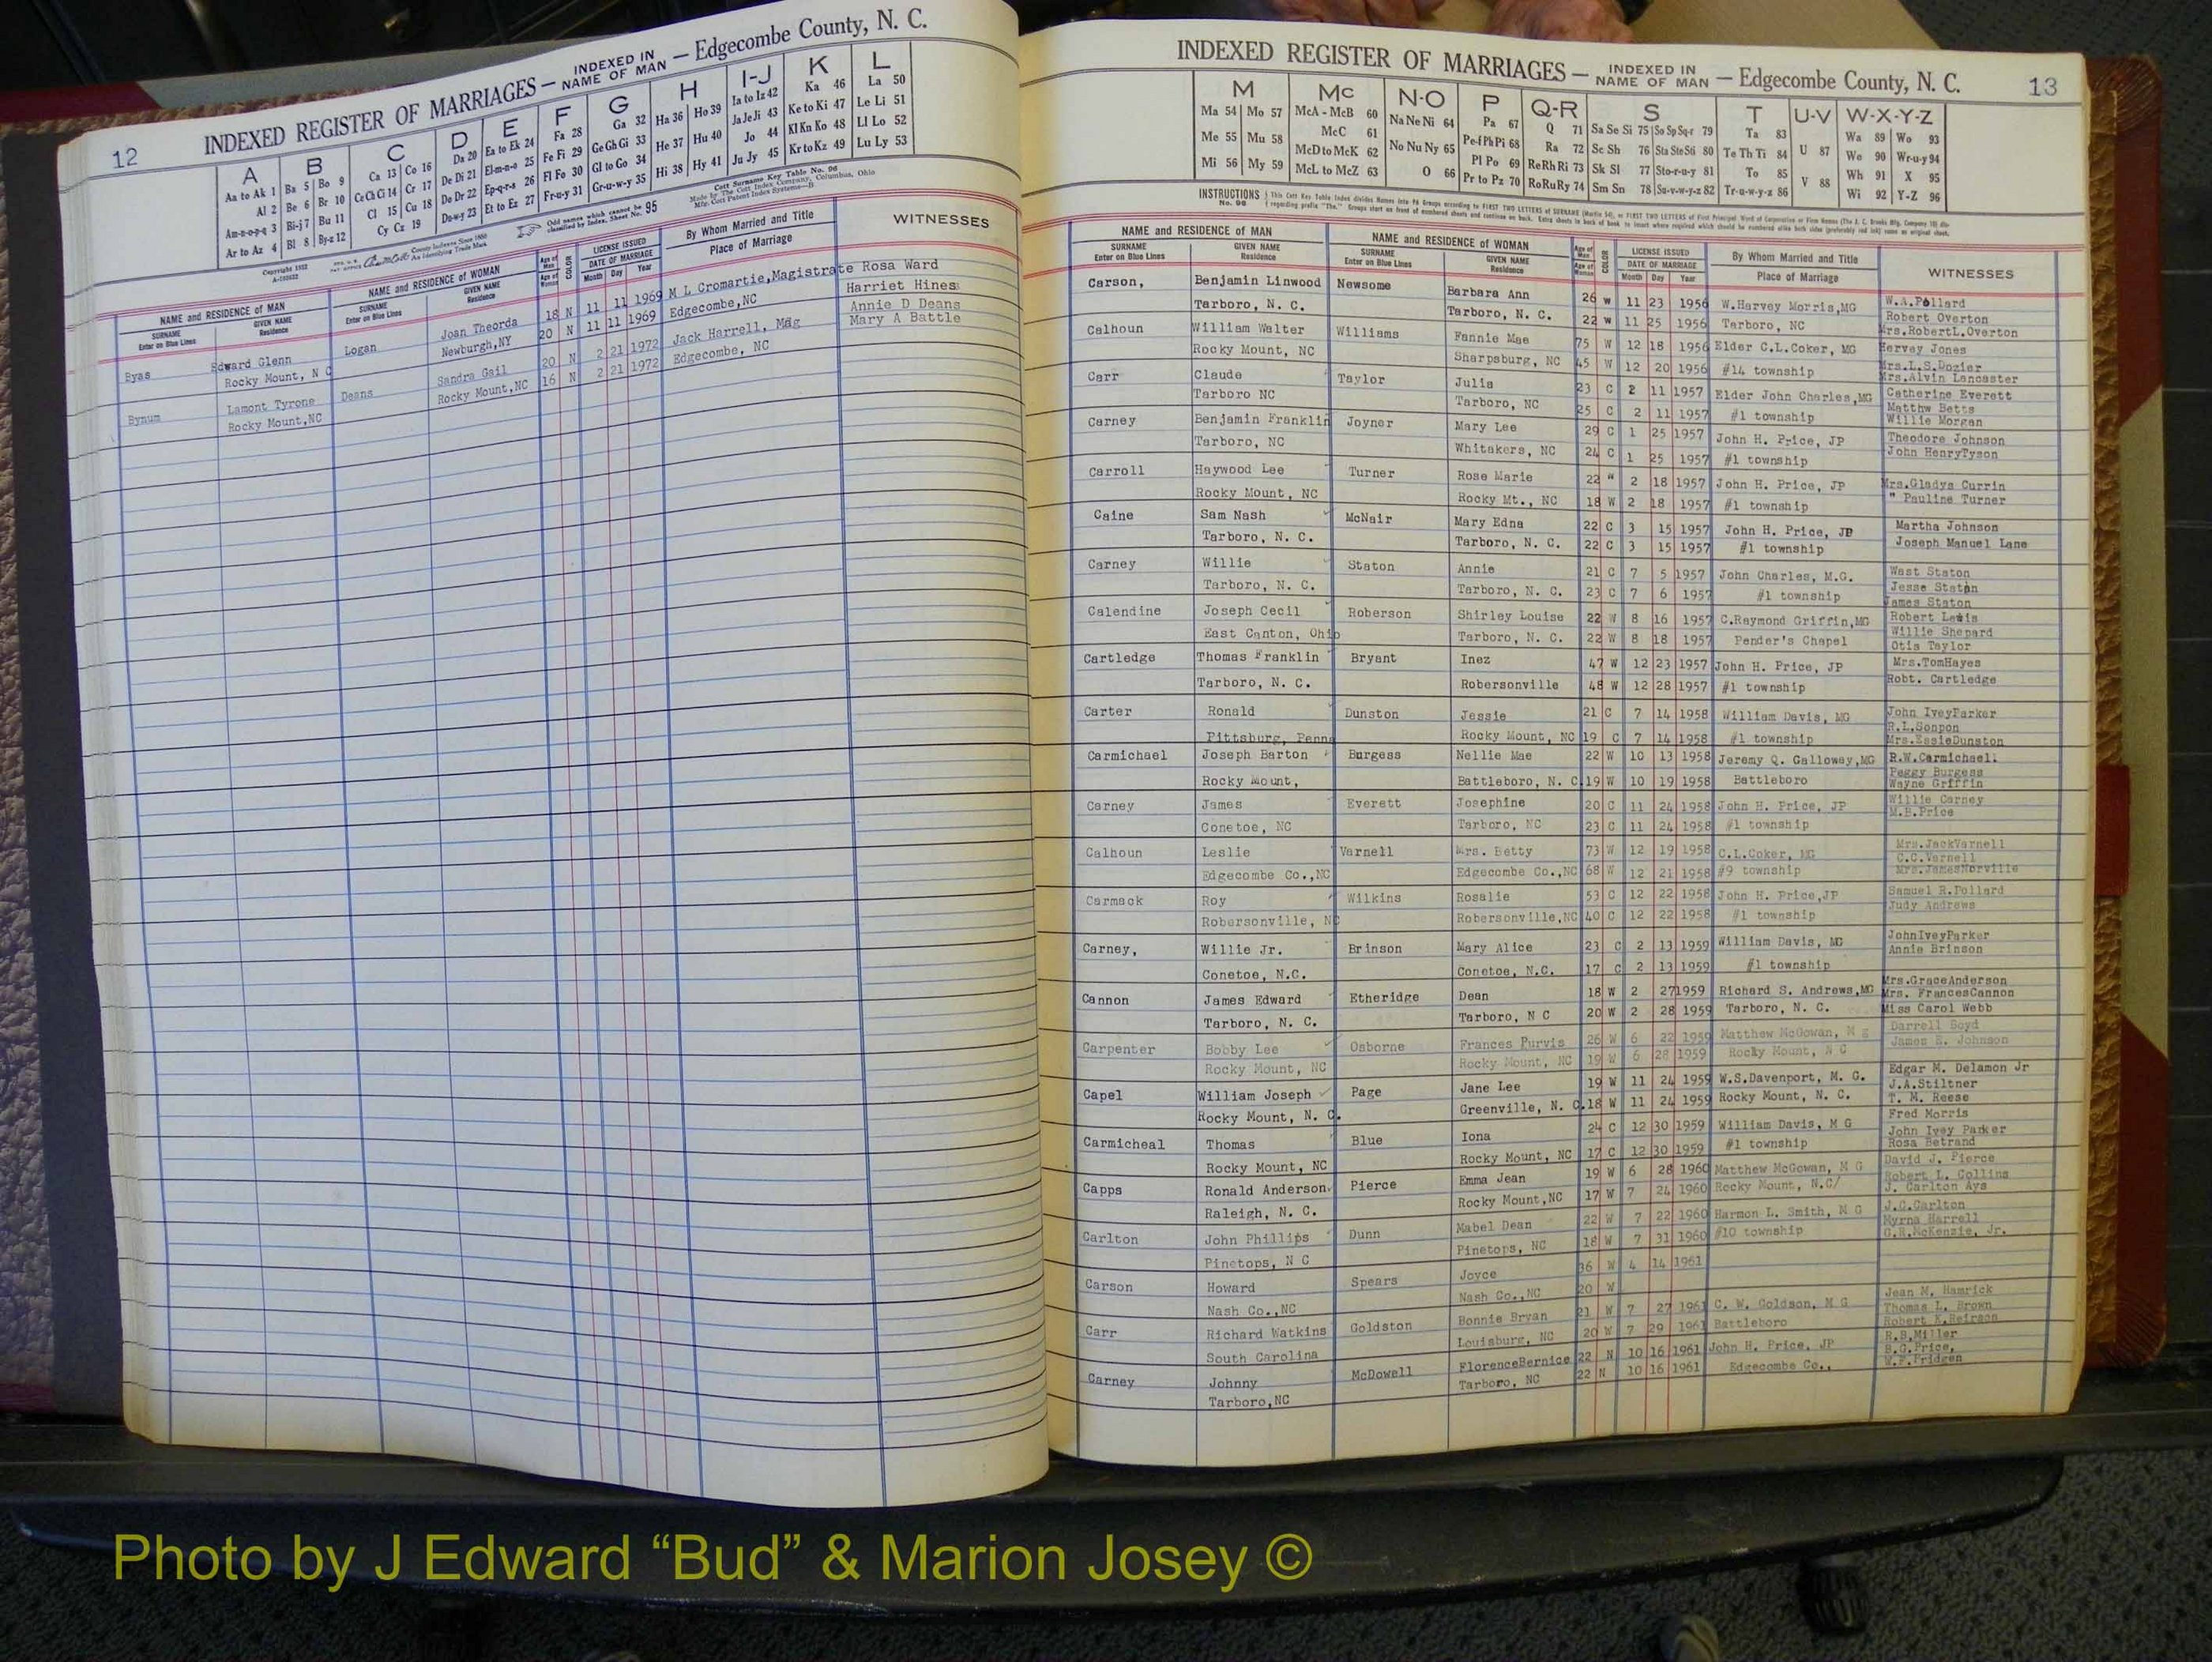 12
INDEXED REGISTER OF MARRIAGES — INDEXED IN NAME OF MAN — Edgecombe County, N. C.
A B C D E F G H I-J K L
Aa to Ak 1 Ba 5 Bo 9 Ca 13 Co 16 Da 20 Ea to Ek 24 Fa 28 Ga 32 Ha 36 Ho 39 Ia to Iz 42 Ka 46 La 50
Al 2 Be 6 Br 10 Ce Ch Ci 14 Cr 17 De Di 21 El-m-n-o 25 Fe Fi 29 Ge Gh Gi 33 He 37 Hu 40 Ja Je Ji 43 Ke to Ki 47 Le Li 51
Am-n-o-p-q 3 Bi-j 7 Bu 11 Cl 15 Cu 18 Do Dr 22 Ep-q-r-s 26 Fl Fo 30 Gl to Go 34 Hi 38 Hy 41 Jo 44 Kl Kn Ko 48 Ll Lo 52
Ar to Az 4 Bl 8 By-z 12 Cy Cz 19 Du-w-y 23 Et to Ez 27 Fr-u-y 31 Gr-u-w-y 35 Ju Jy 45 Kr to Kz 49 Lu Ly 53
Odd names which cannot be classified by Index. Sheet No. 95
Cott Surname Key Table No. 96
Made by The Cott Index Company, Columbus, Ohio
NAME and RESIDENCE of MAN NAME and RESIDENCE of WOMAN COLOR LICENSE ISSUED By Whom Married and Title WITNESSES
SURNAME GIVEN NAME SURNAME GIVEN NAME DATE OF MARRIAGE Place of Marriage
Enter on Blue Lines Residence Enter on Blue Lines Residence Month Day Year
Byas Edward Glenn Logan Joan Theorda 18 N 11 11 1969 M L Cromartie,Magistrate Rosa Ward
Rocky Mount, N C Newburgh,NY 20 N 11 11 1969 Edgecombe,NC Harriet Hines
Bynum Lamont Tyrone Deans Sandra Gail 20 N 2 21 1972 Jack Harrell, Mag Annie D Deans
Rocky Mount,NC Rocky Mount,NC 16 N 2 21 1972 Edgecombe, NC Mary A Battle
INDEXED REGISTER OF MARRIAGES — INDEXED IN NAME OF MAN — Edgecombe County, N. C. 13
M Mc N-O P Q-R S T U-V W-X-Y-Z
Ma 54 Mo 57 McA - McB 60 Na Ne Ni 64 Pa 67 Q 71 Sa Se Si 75 So Sp Sq-r 79 Ta 83 U 87 Wa 89 Wo 93
Me 55 Mu 58 McC 61 No Nu Ny 65 Pe-f Ph Pi 68 Ra 72 Sc Sh 76 Sta Ste Sti 80 Te Th Ti 84 We 90 Wr-u-y 94
Mi 56 My 59 McD to McK 62 O 66 Pl Po 69 Re Rh Ri 73 Sk Sl 77 Sto-r-u-y 81 To 85 V 88 Wh 91 X 95
McL to McZ 63 Pr to Pz 70 Ro Ru Ry 74 Sm Sn 78 Su-v-w-y-z 82 Tr-u-w-y-z 86 Wi 92 Y-Z 96
INSTRUCTIONS
No. 96
NAME and RESIDENCE of MAN NAME and RESIDENCE of WOMAN COLOR LICENSE ISSUED By Whom Married and Title WITNESSES
SURNAME GIVEN NAME SURNAME GIVEN NAME DATE OF MARRIAGE Place of Marriage
Enter on Blue Lines Residence Enter on Blue Lines Residence Month Day Year
Carson, Benjamin Linwood Newsome Barbara Ann 26 W 11 23 1956 W.Harvey Morris,MG W.A.Pollard
Tarboro, N. C. Tarboro, N. C. 22 W 11 25 1956 Tarboro, NC Robert Overton
Mrs.RobertL.Overton
Calhoun William Walter Williams Fannie Mae 75 W 12 18 1956 Elder C.L.Coker, MG Hervey Jones
Rocky Mount, NC Sharpsburg, NC 45 W 12 20 1956 #14 township Mrs.L.S.Dozier
Mrs.Alvin Lancaster
Carr Claude Taylor Julia 23 C 2 11 1957 Elder John Charles,MG Catherine Everett
Tarboro NC Tarboro, NC 25 C 2 11 1957 #1 township Matthw Betts
Willie Morgan
Carney Benjamin Franklin Joyner Mary Lee 29 C 1 25 1957 John H. Price, JP Theodore Johnson
Tarboro, NC Whitakers, NC 24 C 1 25 1957 #1 township John HenryTyson
Carroll Haywood Lee Turner Rose Marie 22 " 2 18 1957 John H. Price, JP Mrs.Gladys Currin
Rocky Mount, NC Rocky Mt., NC 18 W 2 18 1957 #1 township " Pauline Turner
Caine Sam Nash McNair Mary Edna 22 C 3 15 1957 John H. Price, JP Martha Johnson
Tarboro, N. C. Tarboro, N. C. 22 C 3 15 1957 #1 township Joseph Manuel Lane
Carney Willie Staton Annie 21 C 7 5 1957 John Charles, M.G. Wast Staton
Tarboro, N. C. Tarboro, N. C. 23 C 7 6 1957 #1 township Jesse Staton
James Staton
Calendine Joseph Cecil Roberson Shirley Louise 22 W 8 16 1957 C.Raymond Griffin,MG Robert Lewis
East Canton, Ohio Tarboro, N. C. 22 W 8 18 1957 Pender's Chapel Willie Shepard
Otis Taylor
Cartledge Thomas Franklin Bryant Inez 47 W 12 23 1957 John H. Price, JP Mrs.TomHayes
Tarboro, N. C. Robersonville 48 W 12 28 1957 #1 township Robt. Cartledge
Carter Ronald Dunston Jessie 21 C 7 14 1958 William Davis, MG John IveyParker
Pittsburg, Penna Rocky Mount, NC 19 C 7 14 1958 #1 township R.L.Sonpon
Mrs.EssieDunston
Carmichael Joseph Barton Burgess Nellie Mae 22 W 10 13 1958 Jeremy Q. Galloway,MG R.W.Carmichael
Rocky Mount, Battleboro, N. C. 19 W 10 19 1958 Battleboro Peggy Burgess
Wayne Griffin
Carney James Everett Josephine 20 C 11 24 1958 John H. Price, JP Willie Carney
Conetoe, NC Tarboro, NC 23 C 11 24 1958 #1 township M.B.Price
Calhoun Leslie Varnell Mrs. Betty 73 W 12 19 1958 C.L.Coker, MG Mrs.JackVarnell
Edgecombe Co.,NC Edgecombe Co.,NC 68 W 12 21 1958 #9 township C.C.Varnell
Mrs.JamesNorville
Carmack Roy Wilkins Rosalie 53 C 12 22 1958 John H. Price,JP Samuel R.Pollard
Robersonville, NC Robersonville,NC 40 C 12 22 1958 #1 township Judy Andrews
Carney, Willie Jr. Brinson Mary Alice 23 C 2 13 1959 William Davis, MG JohnIveyParker
Conetoe, N.C. Conetoe, N.C. 17 C 2 13 1959 #1 township Annie Brinson
Cannon James Edward Etheridge Dean 18 W 2 27 1959 Richard S. Andrews,MG Mrs.GraceAnderson
Tarboro, N. C. Tarboro, N C 20 W 2 28 1959 Tarboro, N. C. Mrs. FrancesCannon
Miss Carol Webb
Carpenter Bobby Lee Osborne Frances Purvis 26 W 6 22 1959 Matthew McGowan, M g Darrell Boyd
Rocky Mount, NC Rocky Mount, NC 19 W 6 28 1959 Rocky Mount, N C James E. Johnson
Capel William Joseph Page Jane Lee 19 W 11 24 1959 W.S.Davenport, M. G. Edgar M. Delamon Jr
Rocky Mount, N. C. Greenville, N. C. 18 W 11 24 1959 Rocky Mount, N. C. J.A.Stiltner
T. M. Reese
Carmicheal Thomas Blue Iona 24 C 12 30 1959 William Davis, M G Fred Morris
Rocky Mount, NC Rocky Mount, NC 17 C 12 30 1959 #1 township John Ivey Parker
Rosa Betrand
Capps Ronald Anderson Pierce Emma Jean 19 W 6 28 1960 Matthew McGowan, M G David J. Pierce
Raleigh, N. C. Rocky Mount,NC 17 W 7 24 1960 Rocky Mount, N.C/ Robert L. Collins
J. Carlton Aya
Carlton John Phillips Dunn Mabel Dean 22 W 7 22 1960 Harmon L. Smith, M G J.C.Carlton
Pinetops, N C Pinetops, NC 18 W 7 31 1960 #10 township Myrna Harrell
G.R.McKenzie, Jr.
Carson Howard Spears Joyce 36 W 4 14 1961
Nash Co.,NC Nash Co.,NC 20 W
Carr Richard Watkins Goldston Bonnie Bryan 21 W 7 27 1961 C. W. Goldson, M G Jean M. Hamrick
South Carolina Louisburg, NC 20 W 7 29 1961 Battleboro Thomas L. Brown
Carney Johnny McDowell FlorenceBernice 22 N 10 16 1961 John H. Price, JP R.S.Miller
Tarboro,NC Tarboro, NC 22 N 10 16 1961 Edgecombe Co., B.G.Price,
W.F.Pridgen
Photo by J Edward “Bud” & Marion Josey ©